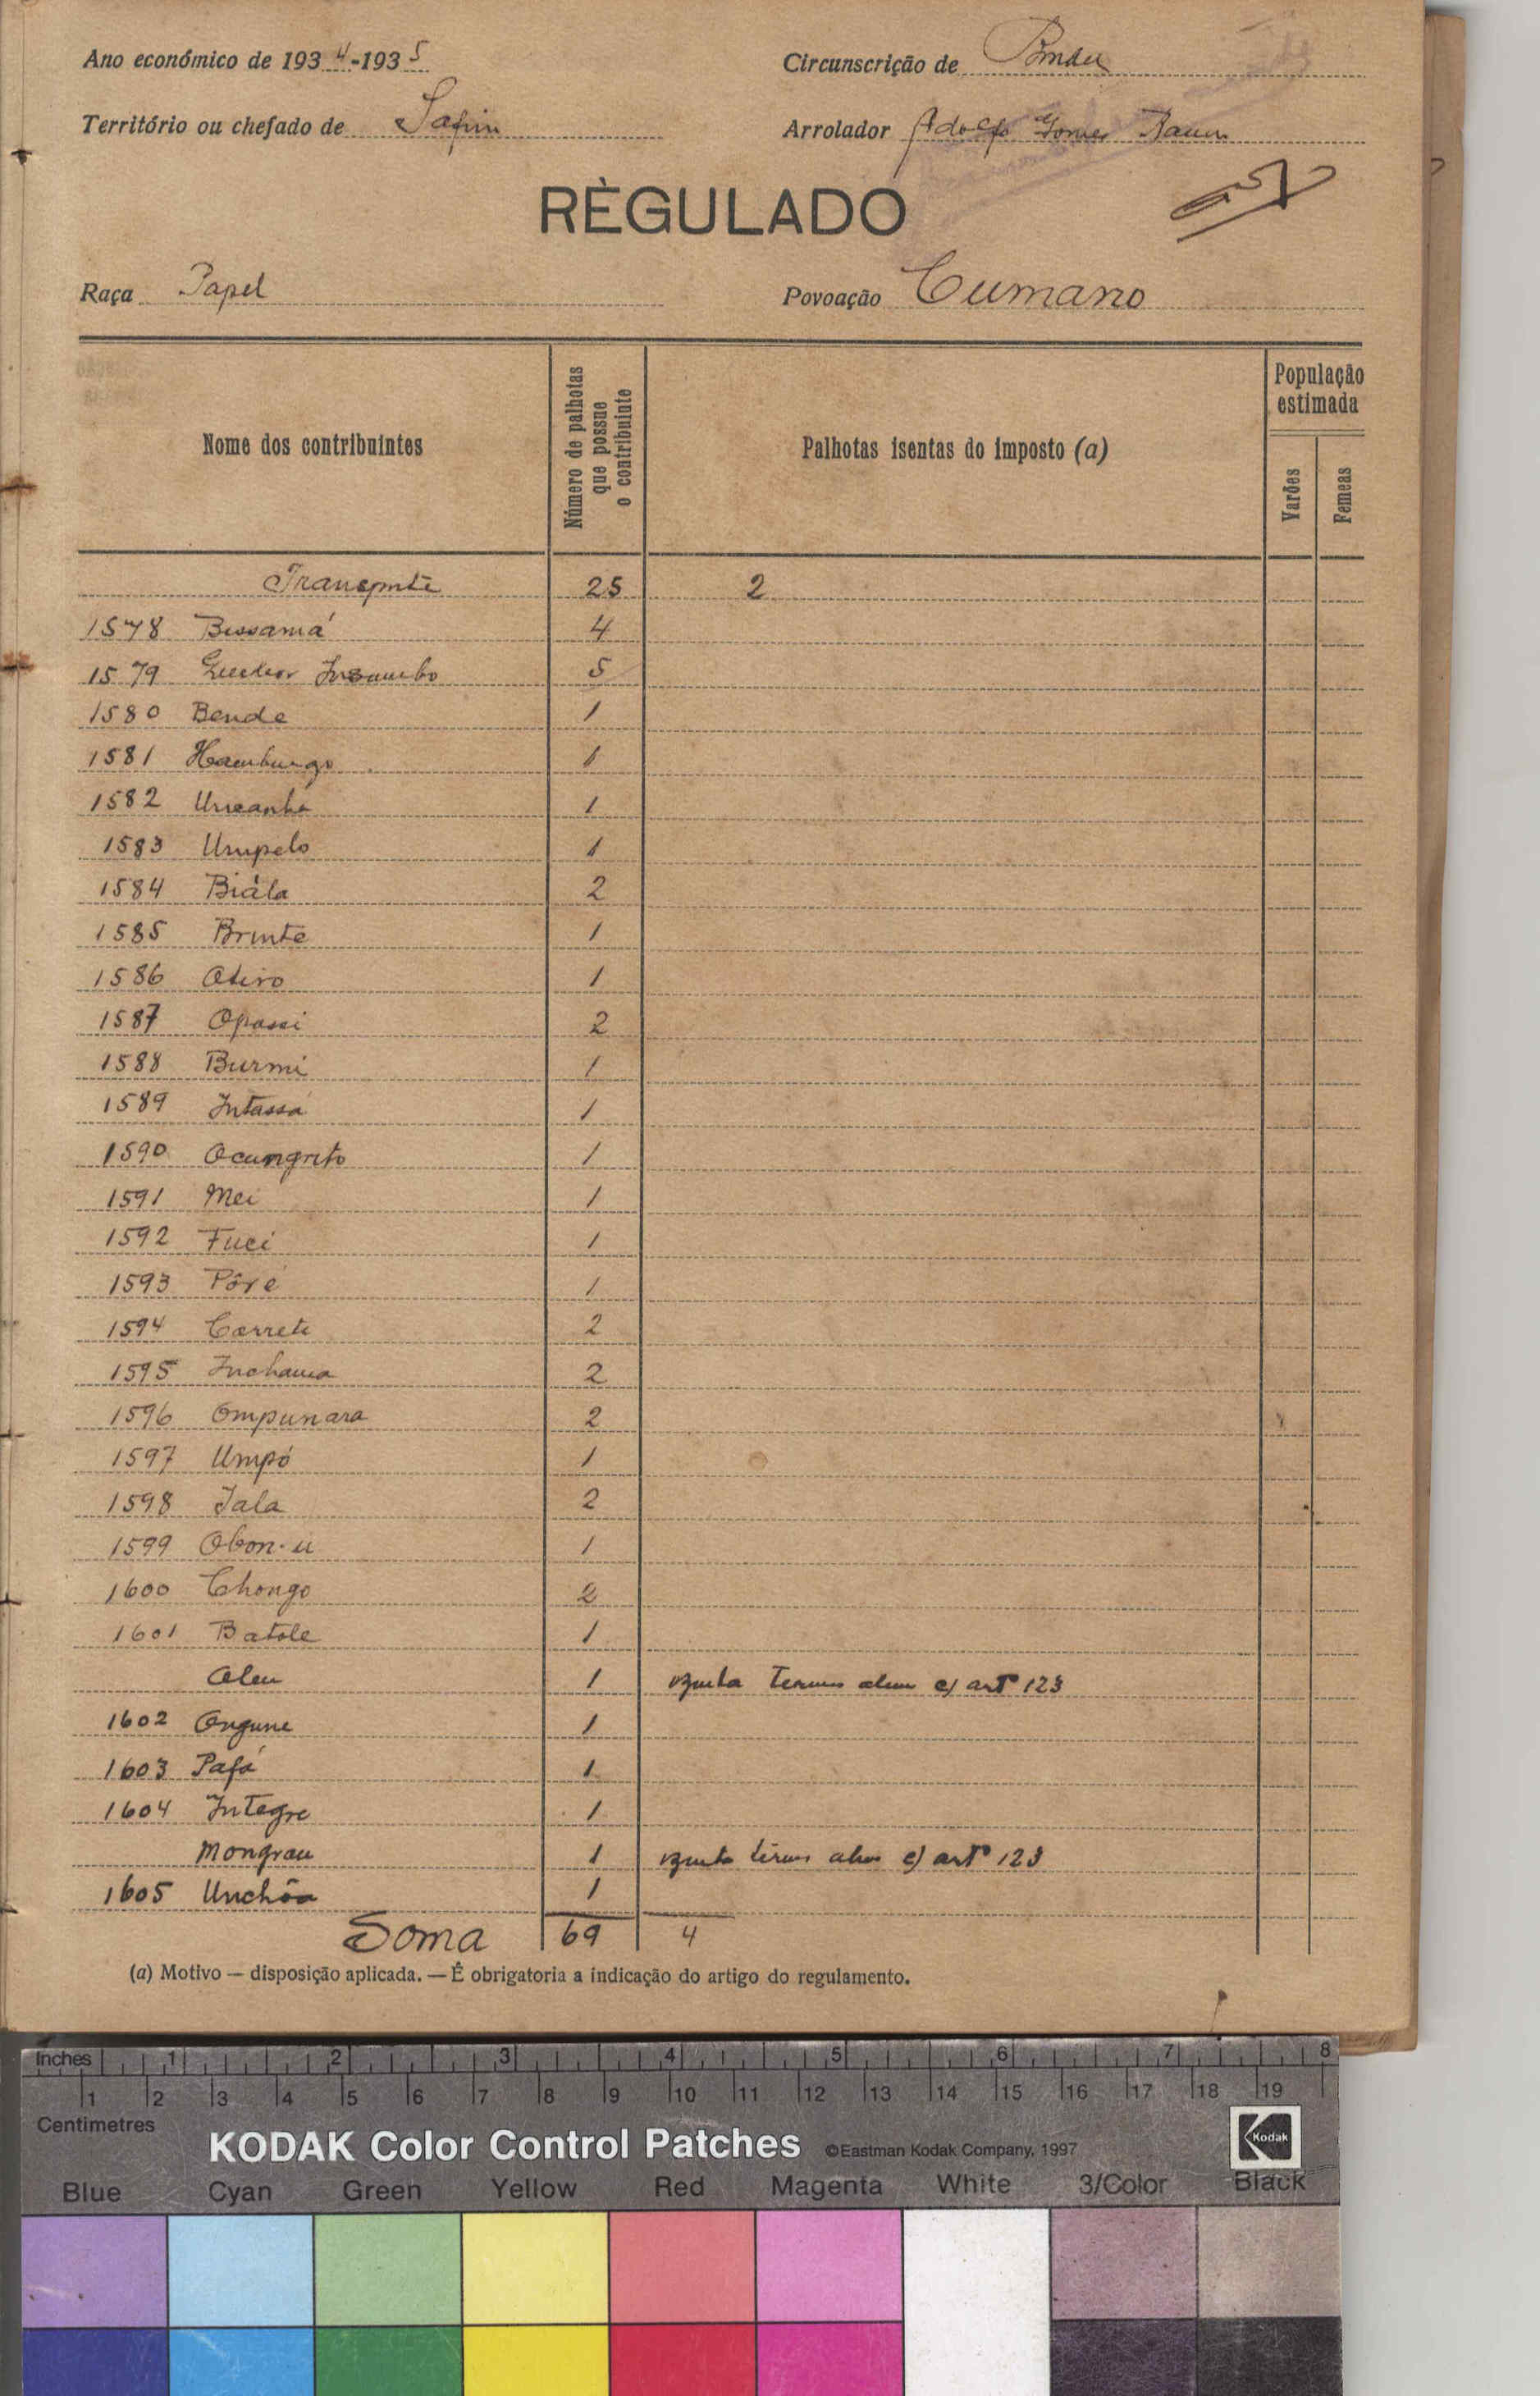 Ano económico de 1934-1935
Circunscrição de Bissau
Território ou chefado de Safim
Arrolador Adolfo Gomes
RÈGULADO
Raça Papel
Povoação Cumano
Nome dos contribuintes
Número de palhotas que possue o contribuinte
Palhotas isentas do imposto (a)
População estimada
Varões
Femeas
Transporte 25 2
1578 Bissamá 4
1579 5
1580 Bende 1
1581 Hamburgo 1
1582 1
1583 Umpelo 1
1584 Biála 2
1585 Brinte 1
1586 1
1587 Opassi 2
1588 Burmi 1
1589 Intassá 1
1590 Ocumgrito 1
1591 Mei 1
1592 Fuci 1
1593 Pôré 1
1594 Carrete 2
1595 Inchama 2
1596 Ompunara 2
1597 Umpó 1
1598 Jala 2
1599 Obon-u 1
1600 Chongo 2
1601 Batole 1
1 c/ artº 123
1602 Ongune 1
1603 Pafá 1
1604 Integre 1
Mongrau 1 c/ artº 123
1605 Unchôa 1
Soma 69 4
(a) Motivo — disposição aplicada. — É obrigatoria a indicação do artigo do regulamento.
Inches 1 2 3 4 5 6 7 8
1 2 3 4 5 6 7 8 9 10 11 12 13 14 15 16 17 18 19
Centimetres
KODAK Color Control Patches ©Eastman Kodak Company, 1997 Kodak
Blue Cyan Green Yellow Red Magenta White 3/Color Black